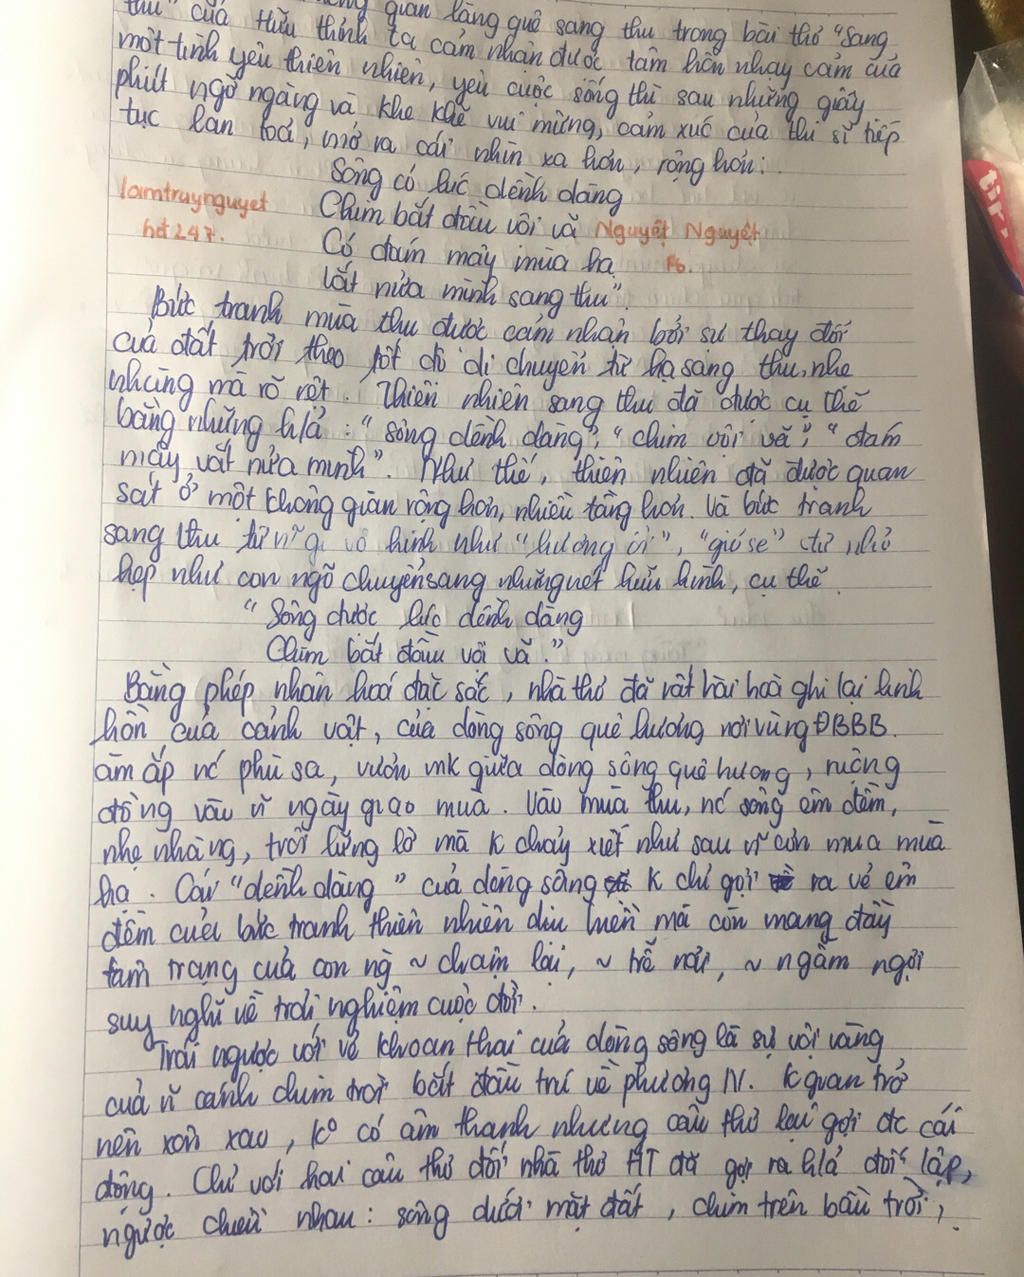 thu" của Hữu Thỉnh ta cảm nhận được tâm hồn nhạy cảm của
gian làng quê sang thu trong bài thơ "Sang
một tình yêu thiên nhiên, yêu cuộc sống thì sau những giây
phút ngỡ ngàng và khe khẽ vui mừng, cảm xúc của thi sĩ tiếp
tục lan toả, mở ra cái nhìn xa hơn, rộng hơn:
Sông có lúc dềnh dàng
lamtruynguyet
Chim bắt đầu vội vã
Nguyệt Nguyệt
hđ 247.
Có đám mây mùa hạ
Fb.
Vắt nửa mình sang thu".
Bức tranh mùa thu được cảm nhận bởi sự thay đổi
của đất trời theo tốt độ di chuyển từ hạ sang thu, nhẹ
nhàng mà rõ rệt. Thiên nhiên sang thu đã được cụ thể
bằng những h/ả: "sông dềnh dàng", "chim vội vã", "đám
mây vắt nửa mình". Như thế, thiên nhiên đã được quan
sát ở một không gian rộng hơn, nhiều tầng hơn. Và bức tranh
sang thu từ n~ gì vô hình như "hương ổi", "gió se" từ nhỏ
hẹp như con ngõ chuyển sang những nét hữu hình, cụ thể.
"Sông được lúc dềnh dàng
Chim bắt đầu vội vã."
Bằng phép nhân hoá đặc sắc, nhà thơ đã rất hài hoà ghi lại linh
hồn của cảnh vật, của dòng sông quê hương nơi vùng ĐBBB.
ăm ắp nc phù sa, vươn mk giữa dòng sông quê hương, ruộng
đồng vào n~ ngày giao mùa. Vào mùa thu, nc sông êm đềm,
nhẹ nhàng, trôi lững lờ mà k chảy xiết như sau n~ cơn mưa mùa
hạ. Cái "dềnh dàng" của dòng sông k chỉ gợi ra vẻ êm
đềm của bức tranh thiên nhiên dịu hiền mà còn mang đầy
tâm trạng của con ng ~ chậm lại, ~ trễ nải, ~ ngẫm ngợi
suy nghĩ về trải nghiệm cuộc đời.
Trái ngược với vẻ khoan thai của dòng sông là sự vội vàng
của n~ cánh chim trời bắt đầu trú về phương N. K quan trở
nên xôn xao, ko có âm thanh nhưng câu thơ lại gợi đc cái
động. Chỉ với hai câu thơ đối nhà thơ HT đã gợi ra h/ả đối lập,
ngược chiều nhau: sông dưới mặt đất, chim trên bầu trời,